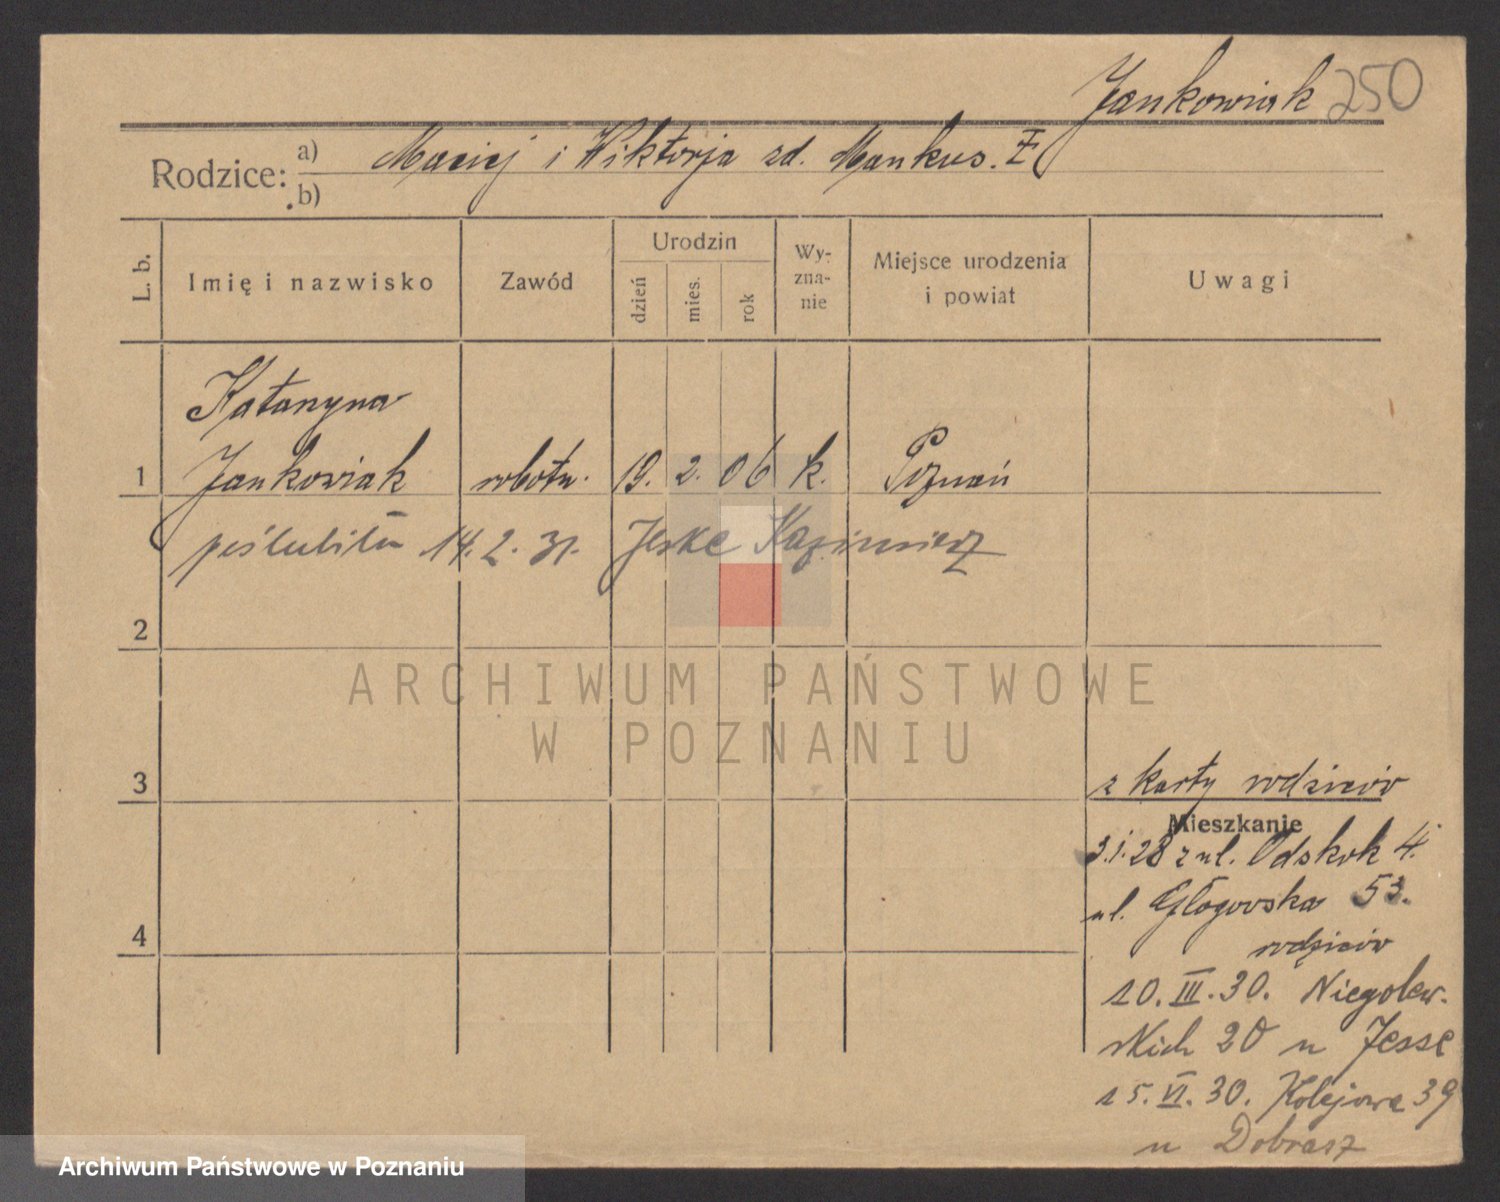 Jankowiak 250
Rodzice: a) Maciej i Wiktorja zd. Mankus.
b)
L. b. Imię i nazwisko Zawód Urodzin dzień mies. rok Wyznanie Miejsce urodzenia i powiat Uwagi
Katarzyna
1 Jankowiak robotn. 19. 2. 06 k. Poznań
poślubiła 14. 2. 31. Jeske Kazimierz
2
ARCHIWUM PAŃSTWOWE
W POZNANIU
3
z karty rodziców
Mieszkanie
3.1.28 z ul. Odskok 4.
ul. Głogowska 53.
4
rodziców
10. III. 30. Niegolew-
skich 20 u Jesse
15. VI. 30. Kolejowa 39
u Dobrasz
Archiwum Państwowe w Poznaniu